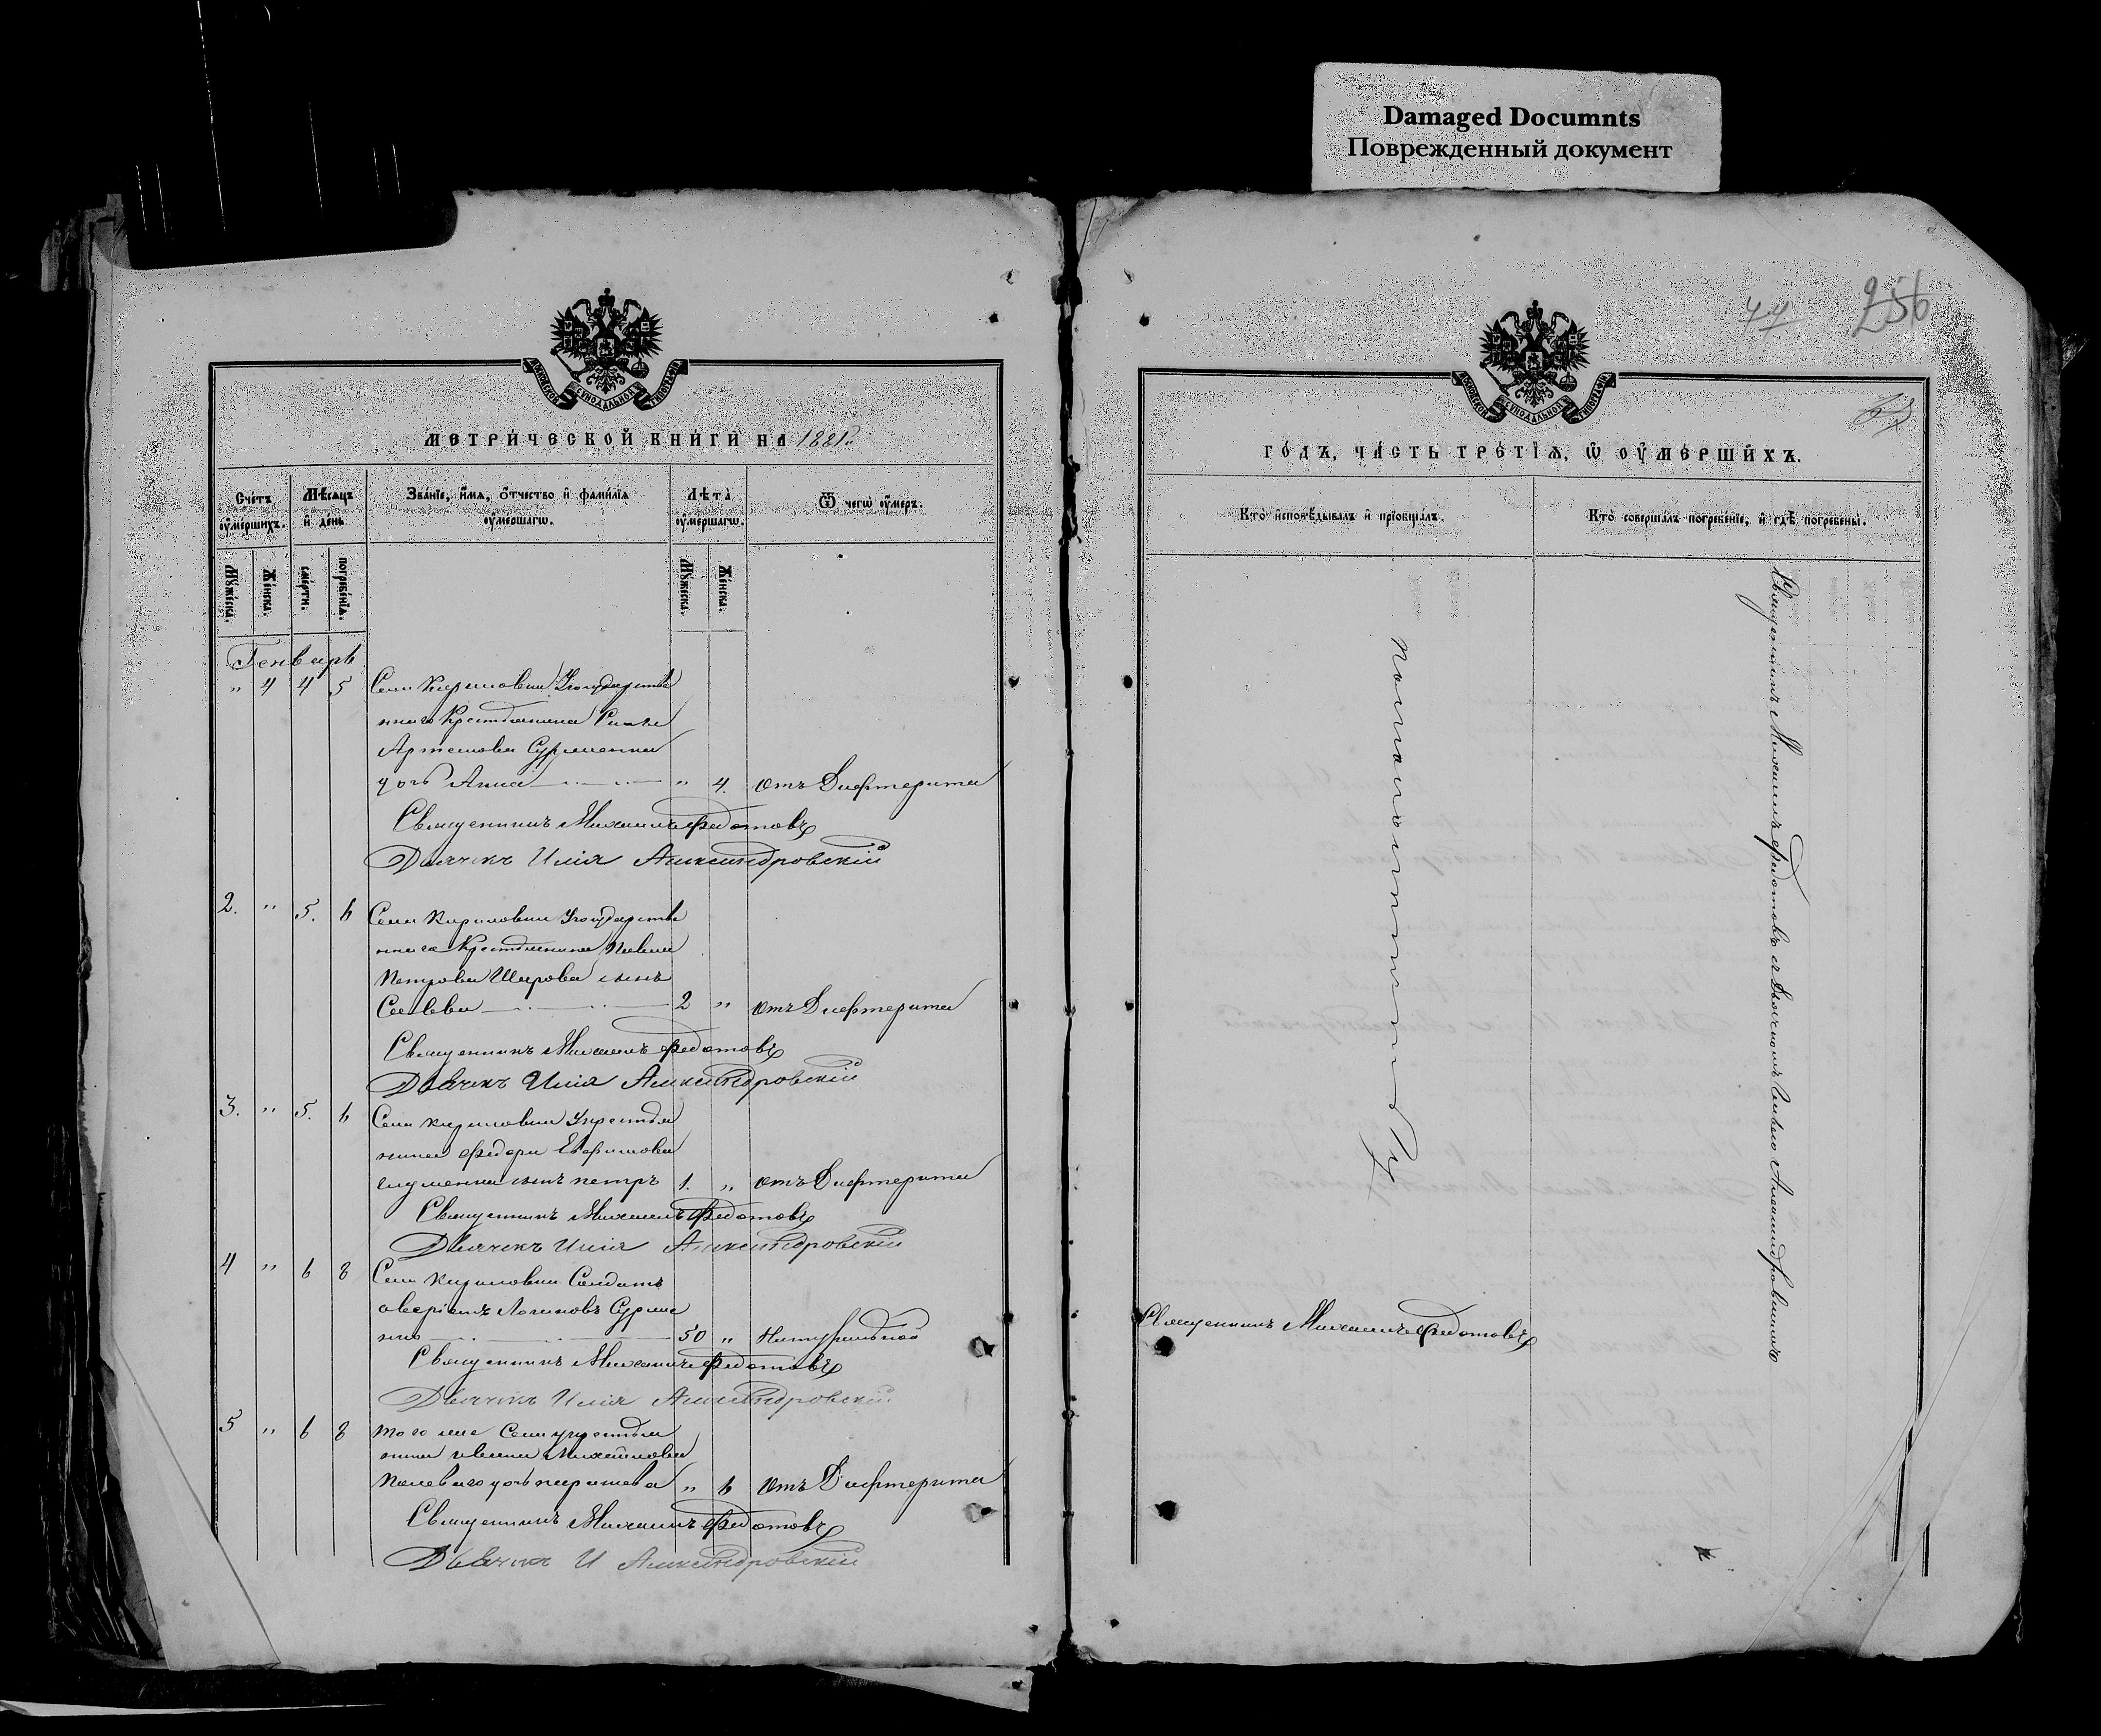 Damaged Documnts
Поврежденный документ
256
МОСКОВСКОЙ СѴНОДАЛЬНОЙ ТИПОГРАФІИ
МЕТРИЧЕСКОЙ КНИГИ НА 1881й
Счетъ оумершихъ.
Мѣсяцъ и день
Званіе, имя, отчество и фамилія оумершагѡ.
Лѣта оумершагѡ.
Ѿ чегѡ оумеръ.
Мужеска.
Женска.
смерти.
погребенія.
Мужеска.
Женска.
Генварь
" 4 4 5 Села Кириловки Государстве
ннаго Крестьянина
Артемова Сурменка
дочь Анна " 4. Отъ Дифтерита
Священникъ Михаилъ Федотовъ
Дьячекъ Илія Александровскій
2. " 5. 6 Села Кириловки Государстве
ннаго Крестьянина Павла
Петрова Шарова сынъ
Савва 2 " Отъ Дифтерита
Священникъ Михаилъ Федотовъ
Дьячекъ Илія Александровскій
3. " 5. 6 Села Кириловки Крестья
нина Федора Евфимова
сынъ Петръ 1. " Отъ Дифтерита
Священникъ Михаилъ Федотовъ
Дьячекъ Илія Александровскій
4 " 6 8 Села Кириловки Солдатъ
Логиновъ Сурме
нко 50 " Натуральной
Священникъ Михаилъ Федотовъ
Дьячекъ Илія Александровскій
5 " 6 8 того же Села крестья
нина Ивана Михайлова
дочь " 6 Отъ Дифтерита
Священникъ Михаилъ Федотовъ
Дьячекъ И Александровскій
МОСКОВСКОЙ СѴНОДАЛЬНОЙ ТИПОГРАФІИ
ГОДЪ, ЧАСТЬ ТРЕТІЯ, Ѡ ОУМЕРШИХЪ.
Кто исповѣдывалъ и пріобщалъ.
Кто совершалъ погребеніе, и гдѣ погребены.
Священникъ Михаилъ Федотовъ
Священникъ Михаилъ Федотовъ съ Дьячкомъ Иліею Александровскимъ